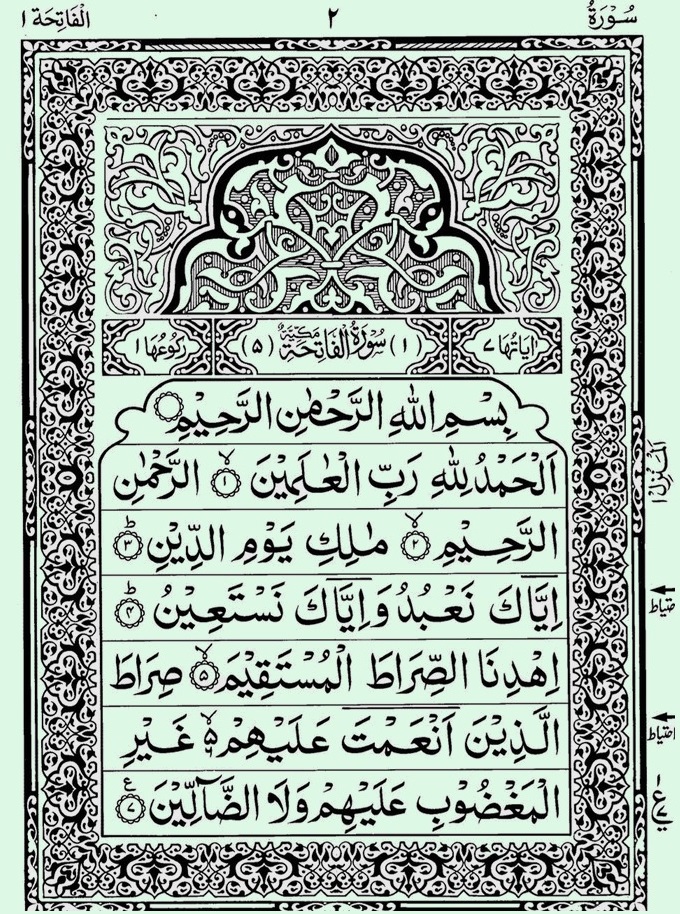 سُوْرَةُ ٢ الْفَاتِحَة ١
اٰيَاتُهَا ٧ (١) سُوْرَةُ الْفَاتِحَةِ مَكِّيَّةٌ (٥) رُكُوْعُهَا ١
بِسْمِ اللّٰهِ الرَّحْمٰنِ الرَّحِيْمِ
اَلْحَمْدُ لِلّٰهِ رَبِّ الْعٰلَمِيْنَ ۙ﴿١﴾ الرَّحْمٰنِ
الرَّحِيْمِ ۙ﴿٢﴾ مٰلِكِ يَوْمِ الدِّيْنِ ؕ﴿٣﴾
اِيَّاكَ نَعْبُدُ وَاِيَّاكَ نَسْتَعِيْنُ ؕ﴿٤﴾
اِهْدِنَا الصِّرَاطَ الْمُسْتَقِيْمَ ۙ﴿٥﴾ صِرَاطَ
الَّذِيْنَ اَنْعَمْتَ عَلَيْهِمْ ۙ۵ غَيْرِ
الْمَغْضُوْبِ عَلَيْهِمْ وَلَا الضَّآلِّيْنَ ﴿٧﴾ ع
اَلْمَنْزِلُ ١
احتیاط
احتیاط
١ ع ٧